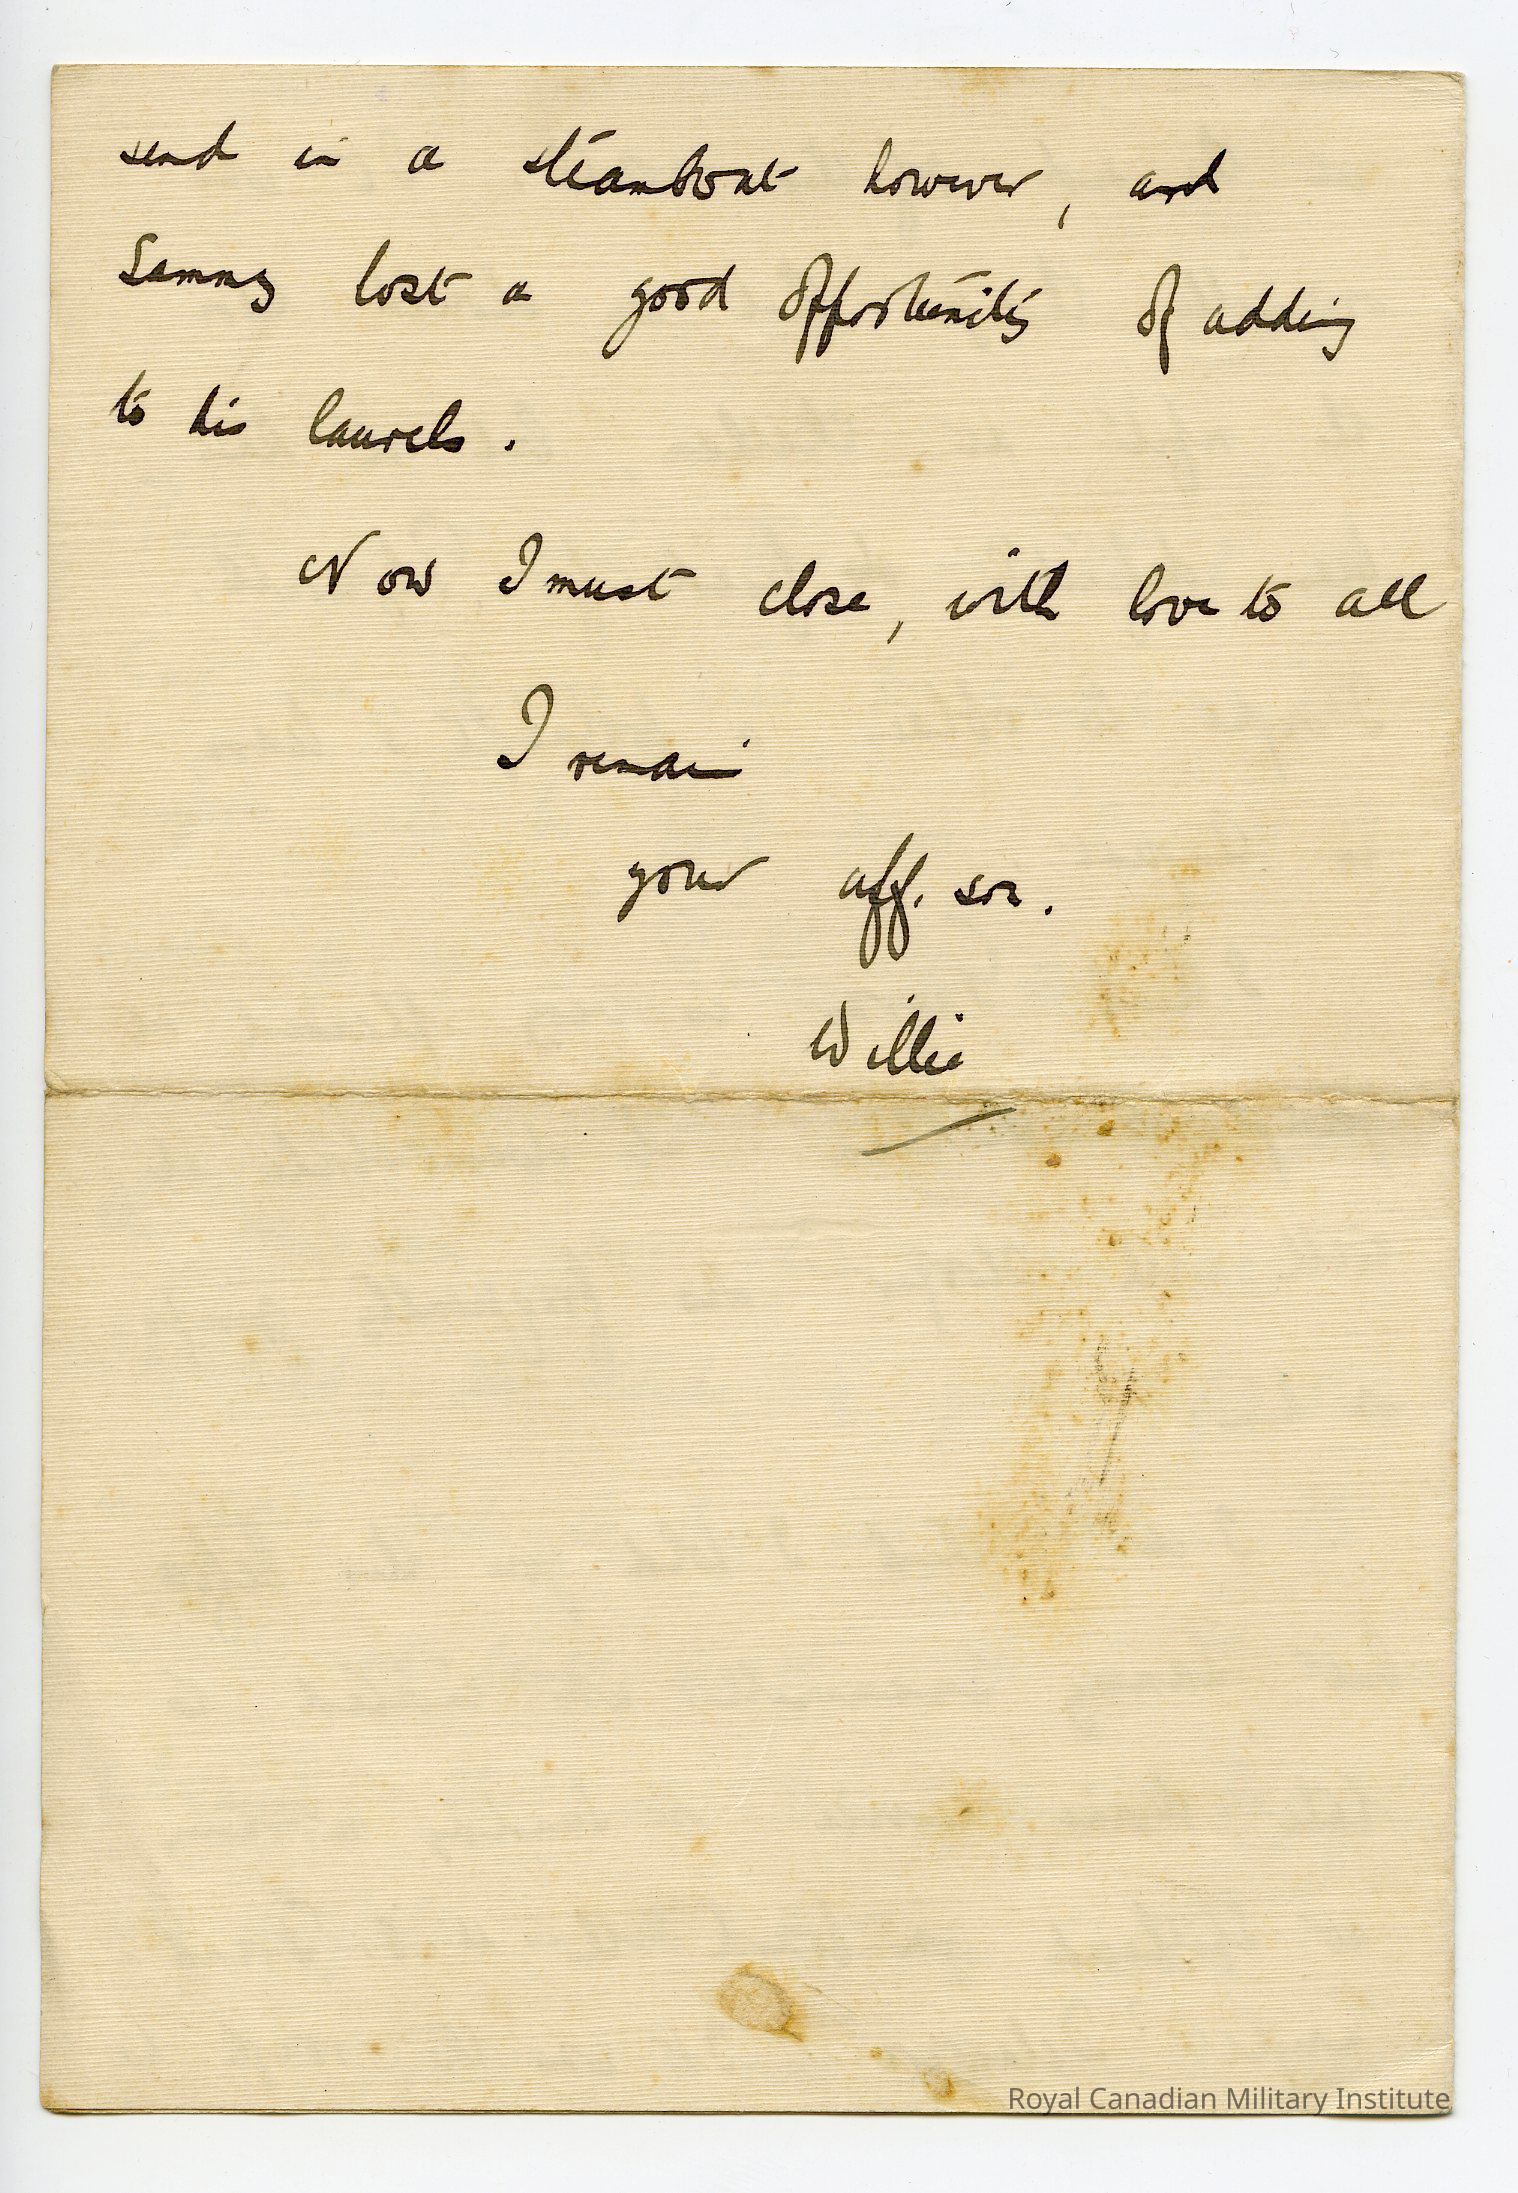 send in a steamboat however, and
Sammy lost a good opportunity of adding
to his laurels.
Now I must close, with love to all
I remain
your aff. son.
Willie
Royal Canadian Military Institute